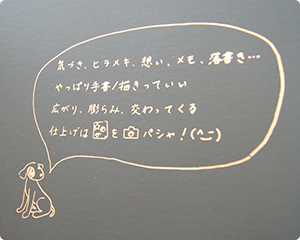 気づき、ヒラメキ、想い、メモ、落書き…
やっぱり手書/描きっていい
広がり、膨らみ、交わってくる
仕上げは を パシャ!(^_-)